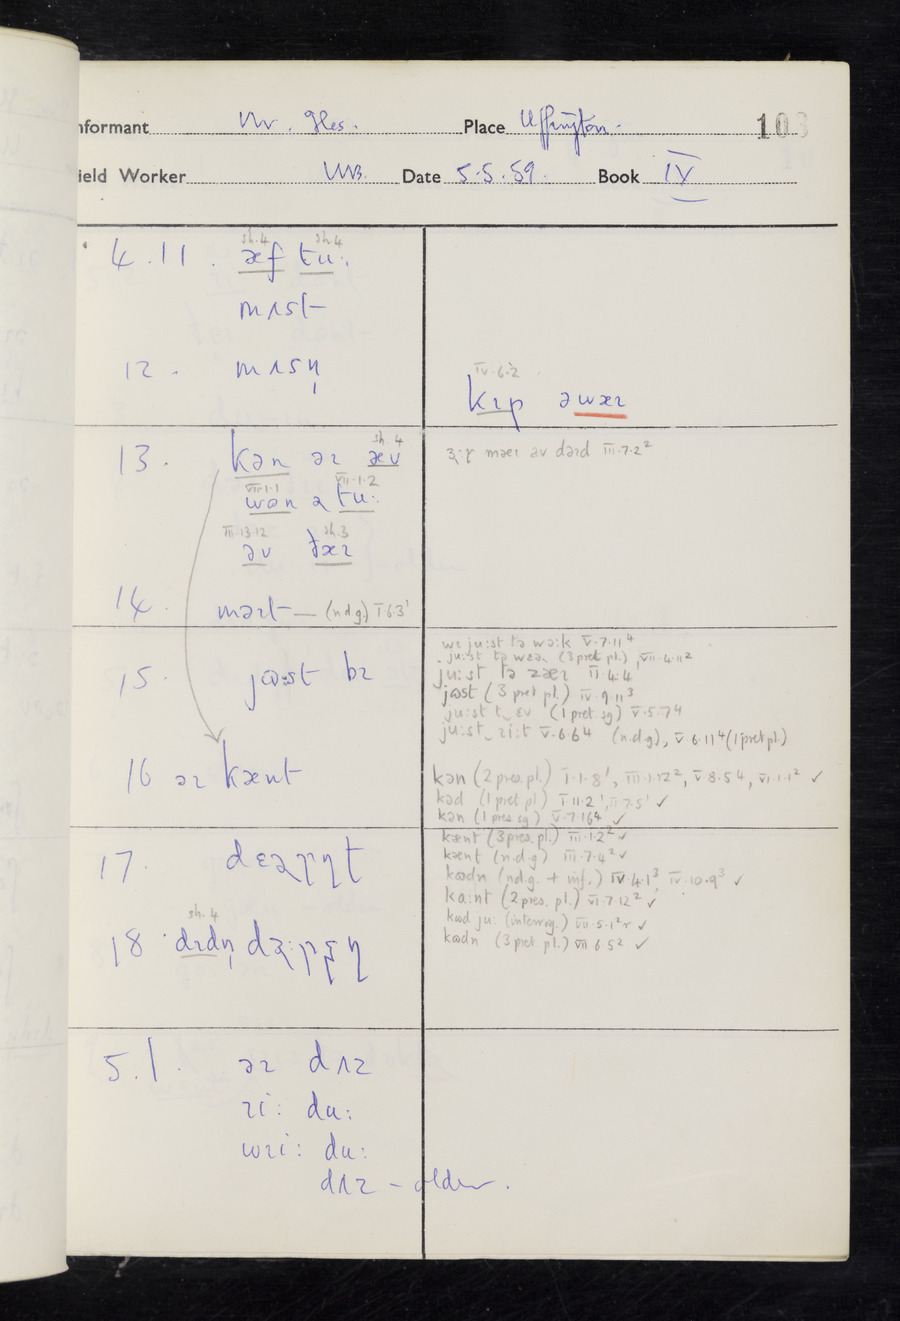 nformant Mr. Iles. Place Uffington. 103
ield Worker WB. Date 5.5.59. Book IV
sh.4 sh.4
4.11. æf tu:
mʌst
12. mʌsn̩
IV.6.2
kɪp əwæɪ
sh.4
13. kən əɪ æv
VII.1.1 VII.1.2
wən ə tu:
III.13.12 sh.3
əv ðæɪ
məəɪ əv dəɪd III.7.2²
14. məɪt — (n.d.g.) I.6.3¹
15. jɷ:st bɪ
wɪ ju:st tə wə:k V.7.11⁴
ju:st tə wɛə (3 pret pl.), VII.4.11²
ju:st tə zæɪ II.4.4
jɷst (3 pret pl.) IV.9.11³
ju:st t‿ɛv (1 pret. sg) V.5.7⁴
ju:st‿ɪi:t V.6.6⁴ (n.d.g), V.6.11⁴ (1 pret pl.)
16 əɪ kænt
kən (2 pres. pl.) I.1.8¹, III.1.12², V.8.5⁴, VI.1.1² ✓
kəd (1 pret pl) I.11.2¹, II.7.5¹ ✓
kən (1 pres sg) V.7.16⁴ ✓
kænt (3 pres. pl.) III.1.2² ✓
kænt (n.d.g) III.7.4² ✓
kɷdn (n.d.g. + inf.) IV.4.1³, IV.10.9³ ✓
ka:nt (2 pres. pl.) VI.7.12² ✓
kɷd ju: (interrog.) VII.5.1² ✓
kɷdn (3 pret pl.) VII 6.5² ✓
17. dɛəɽɳt
sh.4
18 dɪdn̩
5.1. əɪ dʌz
ɪi: du:
wɪi: du:
dʌz – older.